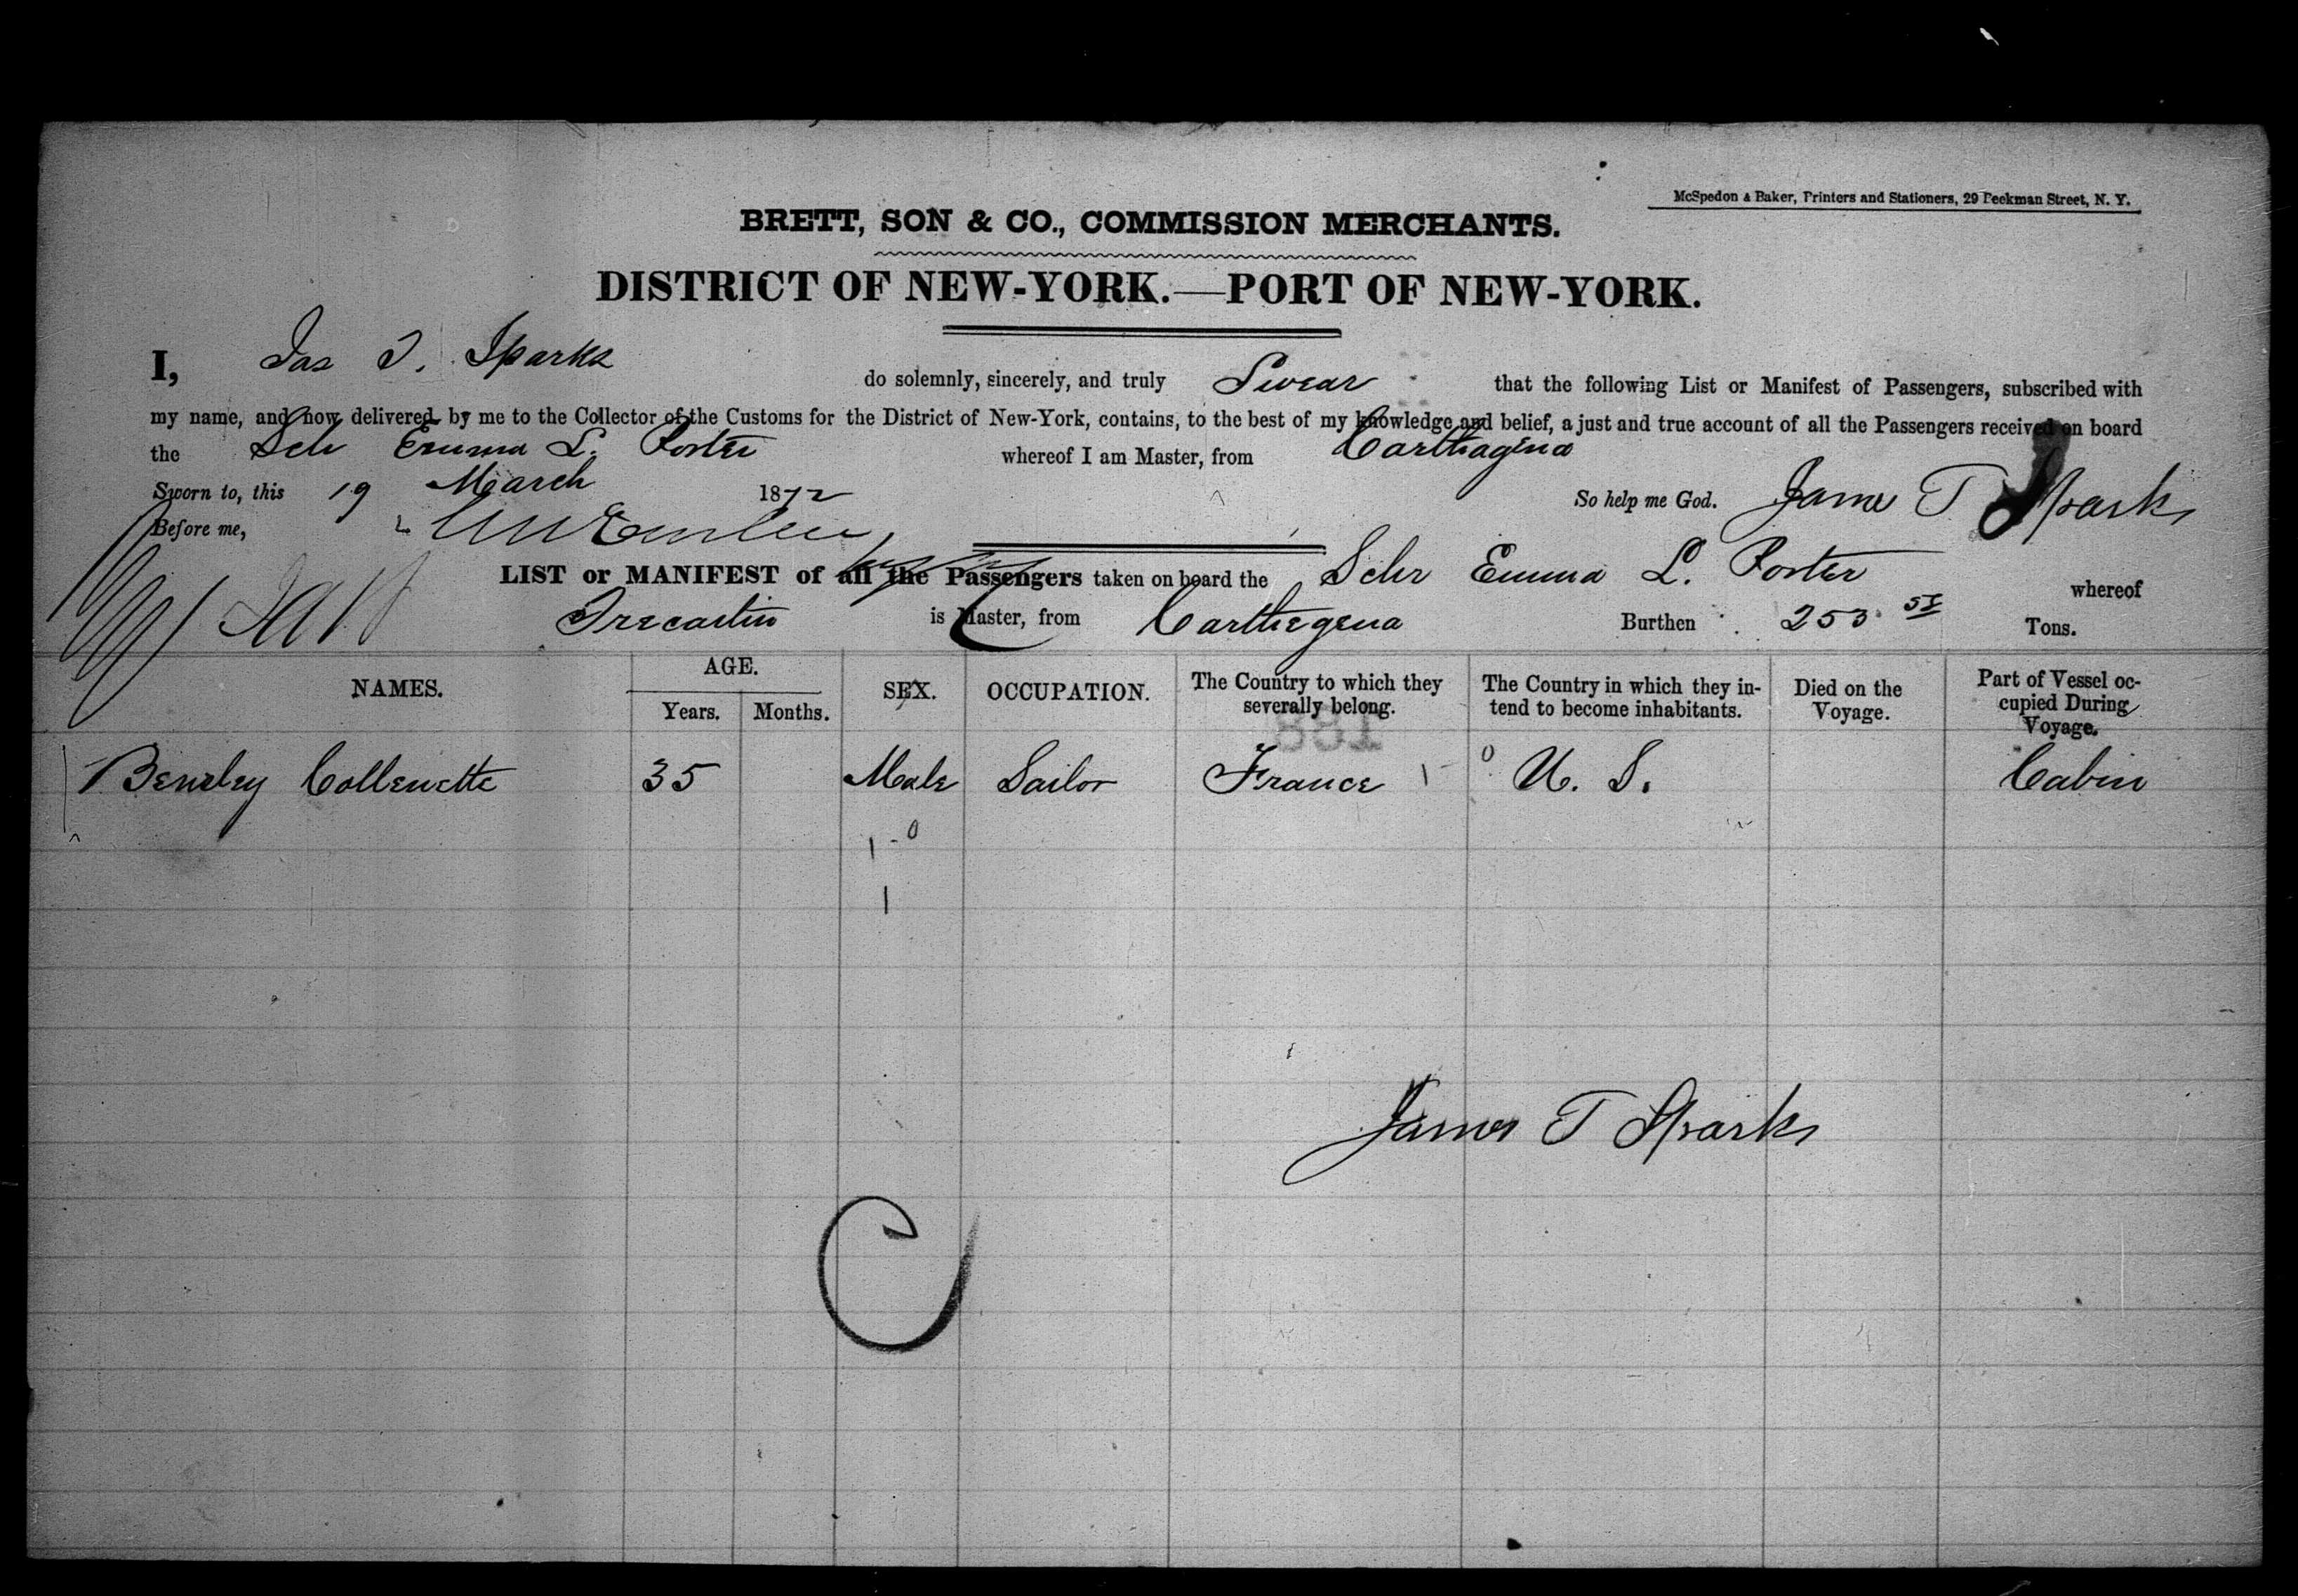 McSpedon & Baker, Printers and Stationers, 29 Beekman Street, N. Y.
BRETT, SON & CO., COMMISSION MERCHANTS.
DISTRICT OF NEW-YORK.—PORT OF NEW-YORK.
I, Jas T. Sparks do solemnly, sincerely, and truly Swear that the following List or Manifest of Passengers, subscribed with
my name, and now delivered by me to the Collector of the Customs for the District of New-York, contains, to the best of my knowledge and belief, a just and true account of all the Passengers received on board
the Sch Emma L. Porter whereof I am Master, from Carthagena
Sworn to, this 19 March 1872 So help me God. James T Sparks
Before me,
LIST or MANIFEST of all the Passengers taken on board the Schr Emma L. Porter whereof
is Master, from Carthegena Burthen 253 Tons.
NAMES. AGE. SEX. OCCUPATION. The Country to which they severally belong. The Country in which they intend to become inhabitants. Died on the Voyage. Part of Vessel occupied During Voyage.
Years. Months.
Collenette 35 Male Sailor France 1 0 U. S. Cabin
1 - 0
1
James T Sparks
C